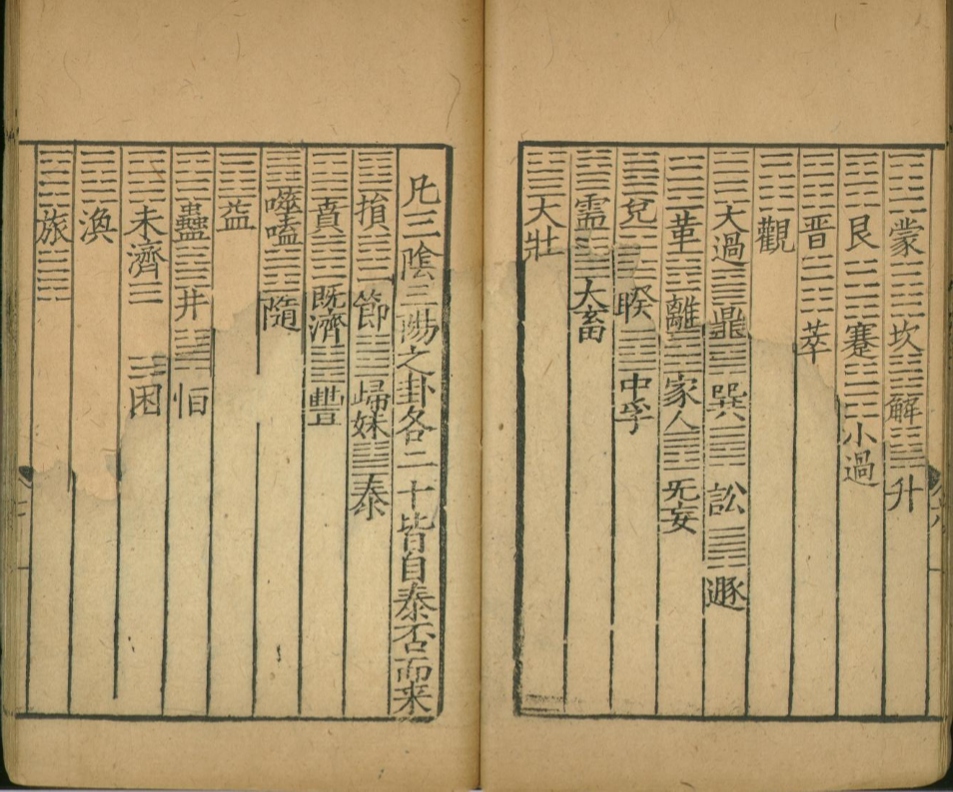 蒙 坎 解 升
艮 蹇 小過
晋 萃
觀
大過 鼎 巽 訟 遯
革 離 家人 无妄
兌 睽 中孚
需 大畜
大壯
凡三隂三陽之卦各二十皆自泰否而来
損 節 歸妹 泰
賁 既濟 豐
噬嗑 隨
益
蠱 井 恒
未濟 困
渙
旅